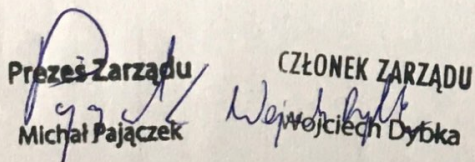 Prezes Zarządu
Michał Pajączek
CZŁONEK ZARZĄDU
Wojciech Dybka